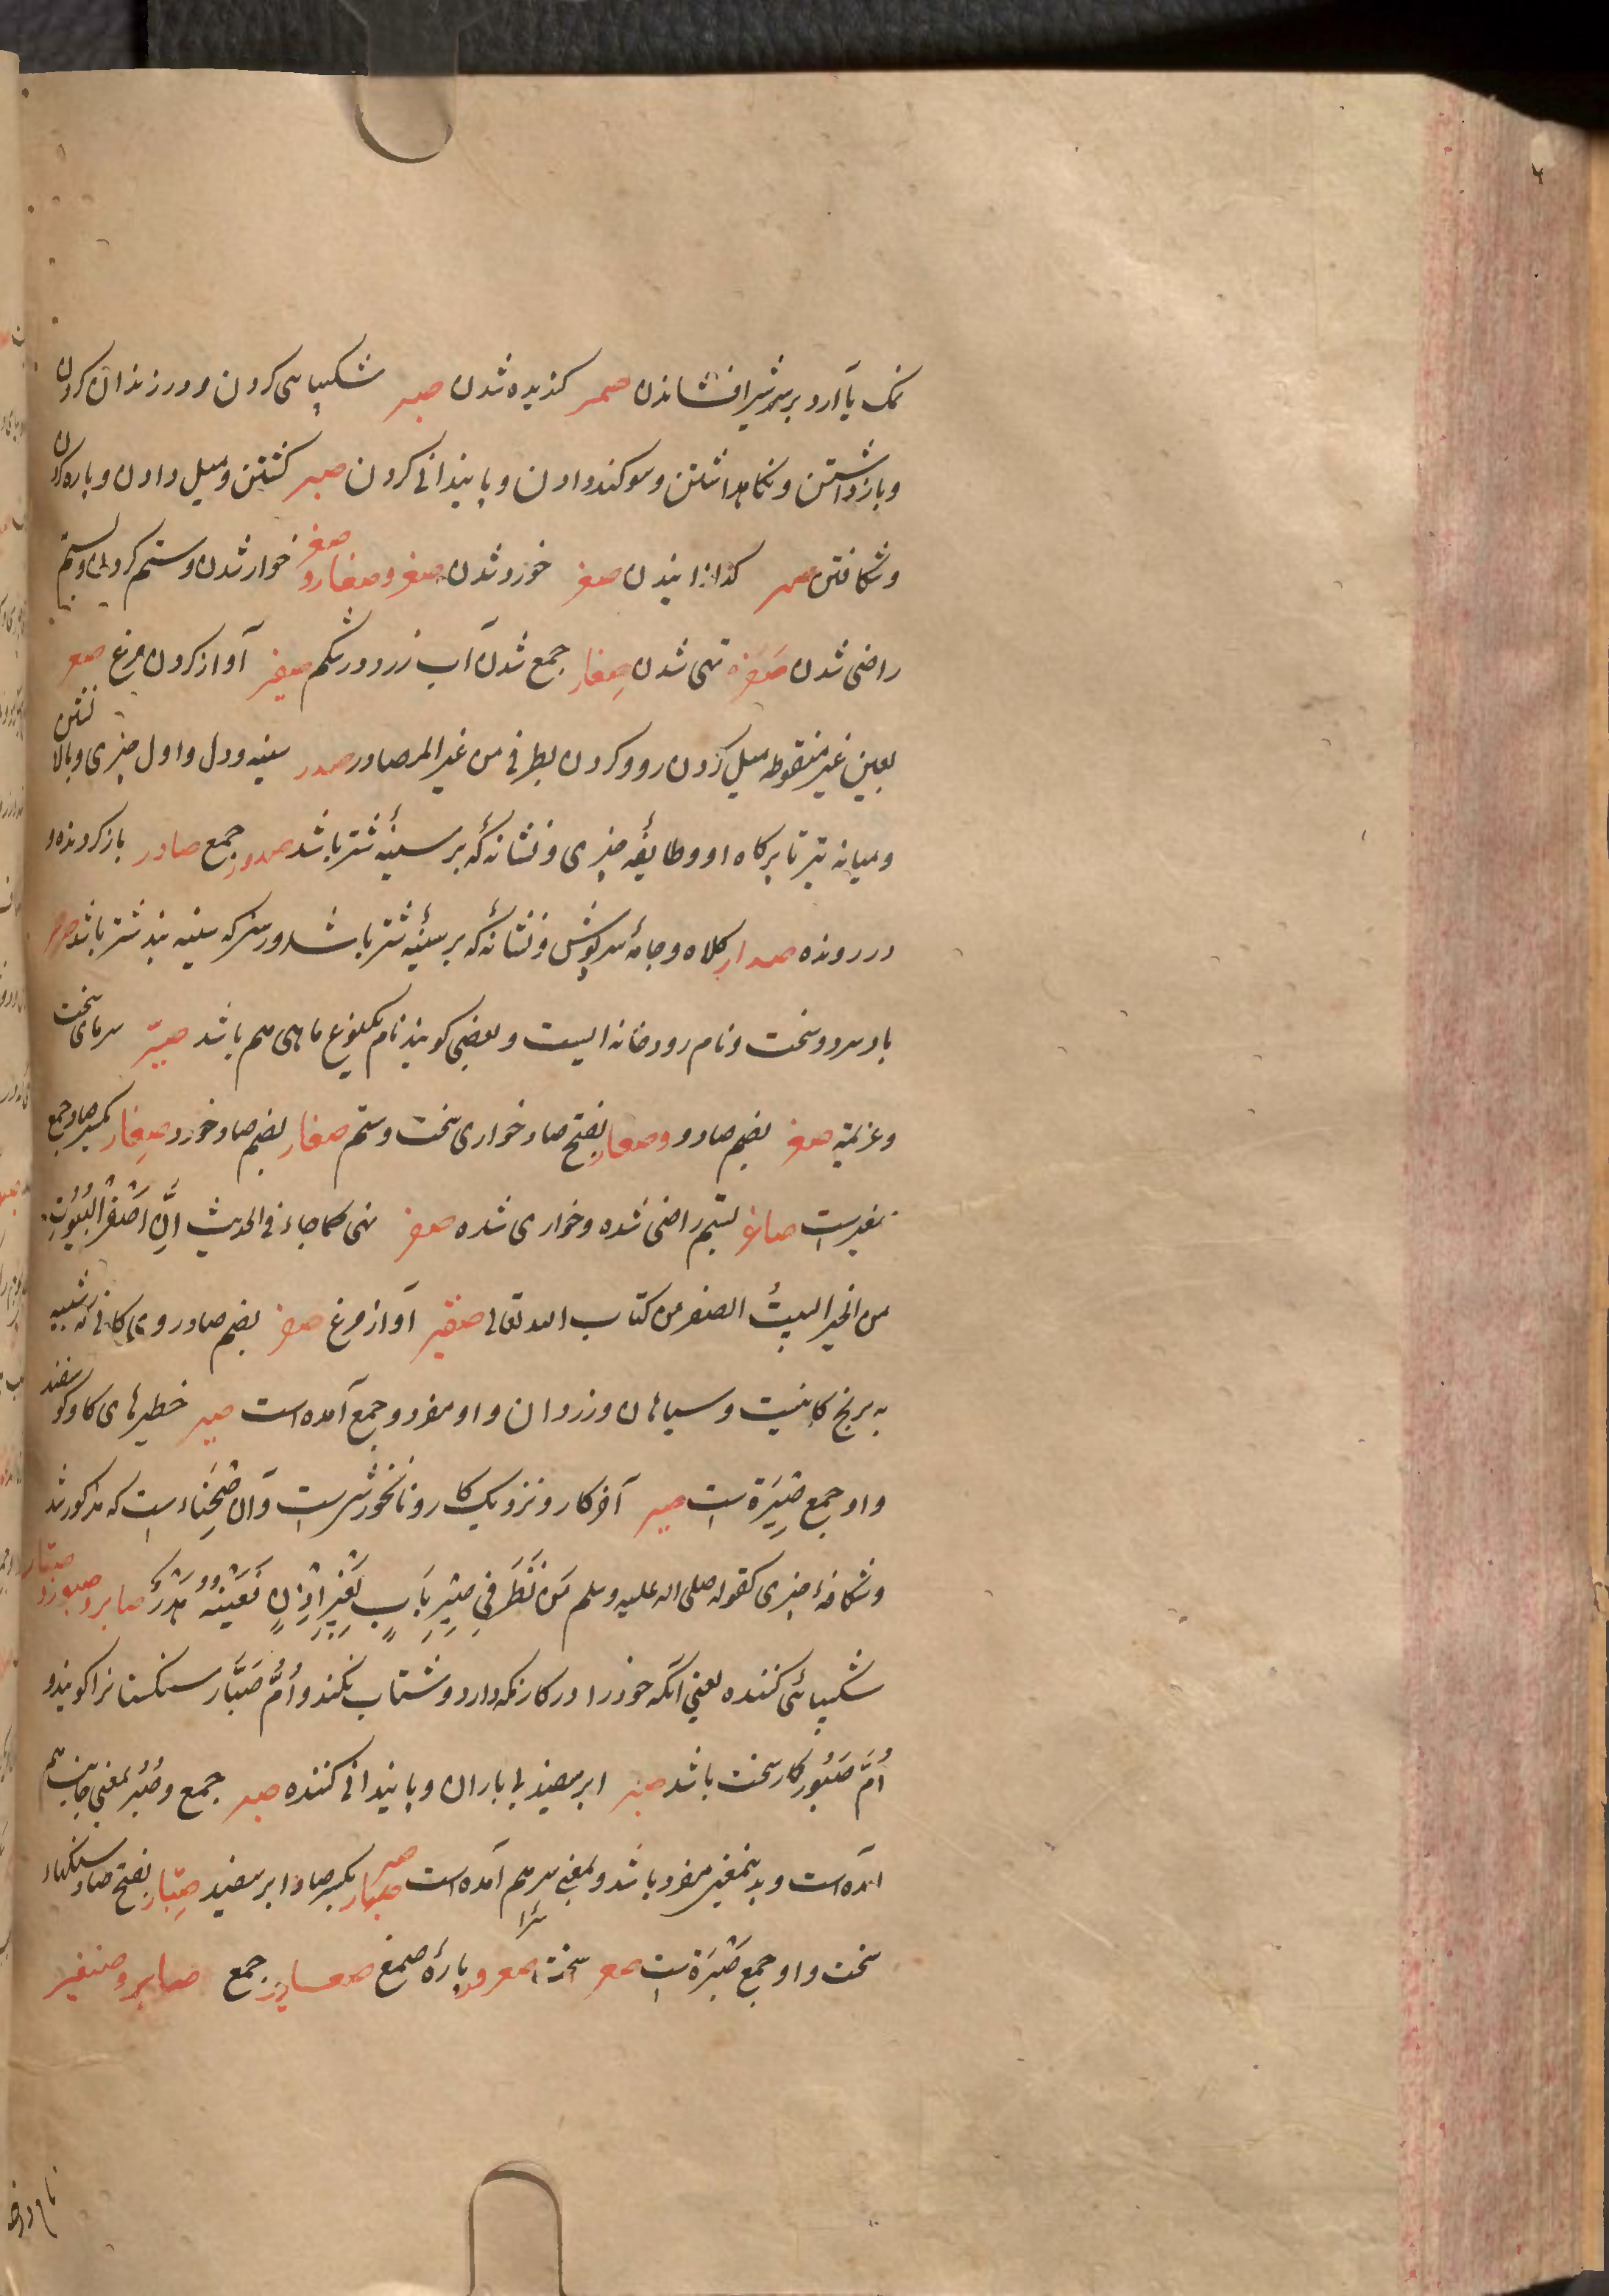 نمک یا آرد بر سر شیر افشاندن صمر کندیده شدن صبر شکیبایی کردن و در زندان کردن
و بازداشتن و نگاهداشتن و سوکند دادن و پایندانی کردن صیر کشتن و میل دادن و پاره کردن
و شکافتن صهر کدازانیدن صغر خورد شدن صغر و صغار و صغر خوار شدن و ستم کردن و بستم
راضی شدن صفرة تهی شدن صِفار جمع شدن آب زرد در شکم صفیر آواز کردن مرغ صعر
بعین غیر منقوطه میل کردن رو و کردن بطرفی من غیر المصادر صدر سینه و دل و اول چیزی و بالا
و میانه تیر تا پرکاه او و طایفهٔ چیزی و نشانهٔ که بر سینهٔ شتر باشد صدور جمع صادر باز کردنده و
در رونده صدار کلاه و جامهٔ سرپوش و نشانهٔ که بر سینهٔ شتر باشد و رسن که سینه بند شتر باشد صرصر
باد سرد و سخت و نام رودخانه ایست و بعضی کویند نام یکنوع ماهی هم باشد صِرّ سرمای سخت
و عزیمة صغر بضم صاد و وصغار بفتح صاد خواری سخت و ستم صغار بضم صاد خورد صِغار بکسر صاد جمع
صغیرست صاغر بستم راضی شده و خواری شده صفر تهی کما جاء فی الحدیث اِنَّ اَصْفَرَ الْبُیُوتِ
من الخیر البیتُ الصفر من کتاب الله تعالی صفیر آواز مرغ صفر بضم صاد روی کانی که شبیه
به برنج کانیست و سیاهان و زردان و او مفرد و جمع آمده است صیر خطیرهای کاو و کوسفند
و او جمع صِیَرَة است صیر آخر کار و نزدیک کار و نانخورش است و آن صَحِناء است که مذکور شد
و شکافهٔ چیزی کقوله صلی الله علیه وسلم مَن نَظَرَ فِی صِیْرِ بَابٍ بِغَیْرِ اِذْنٍ فَعَیْنُهُ هَدَرٌ صابر و صبور و صبّار
شکیبائی کننده یعنی آنکه خود را در کار نکه دارد و شتاب نکند و اُمُّ صَبَّار سنکستانرا کویند و
اُمُّ صَبُور کار سخت باشد صبیر ابر سفید بی باران و پایندانی کننده صبر جمع و صُبُر بمعنی جانب هم
آمده است و بدینمعنی مفرد باشد و بمعنی سر هم آمده است صبر صبار بکسر صاد ابر سفید صِبَار بفتح صاد سنکهاء
سخت و او جمع صَبْرَة است صعر سخت سرا صعرور پارهٔ صمغ صعاریر جمع صابر و صنفیر